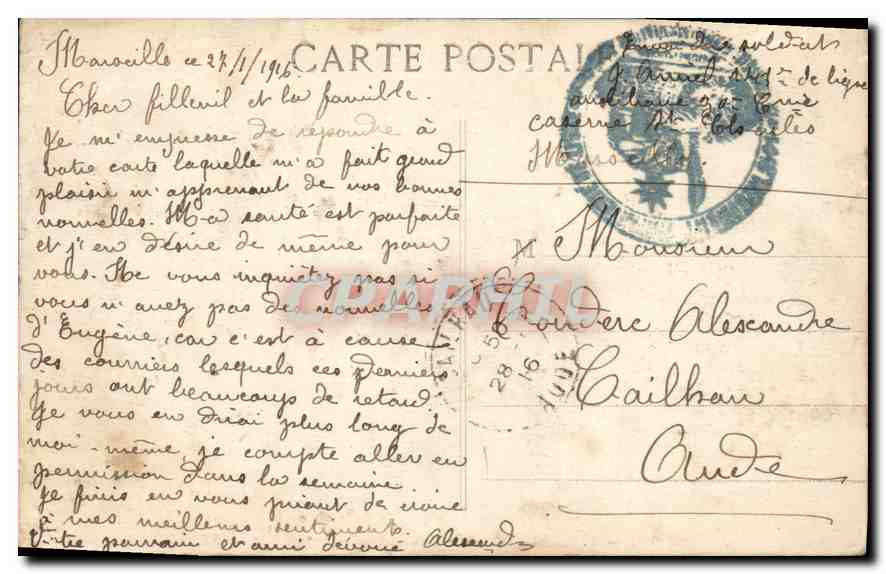 CARTE POSTALE
Marseille ce 27/1/1916.
Cher filleul et la famille.
Je m'empresse de répondre à
votre carte laquelle m'a fait grand
plaisir m'apprenant de vos bonnes
nouvelles. Ma santé est parfaite
et j'en désire de même pour
vous. Ne vous inquiétez pas si
vous n'avez pas de nouvelles
d'Eugène, car c'est à cause
des courriers lesquels ces derniers
jours ont beaucoup de retard.
Je vous en dirai plus long de
moi-même, je compte aller en
permission dans la semaine
Je finis en vous priant de croire
à mes meilleurs sentiments.
Votre parrain et ami dévoué Alexandre
Envoi du soldat
de ligne
auxiliaire Cnie
caserne St Charles
Marseille.
M
Monsieur
Couderc Alexandre
Tailhan
Aude
CPARTIL
28
16
AUDE